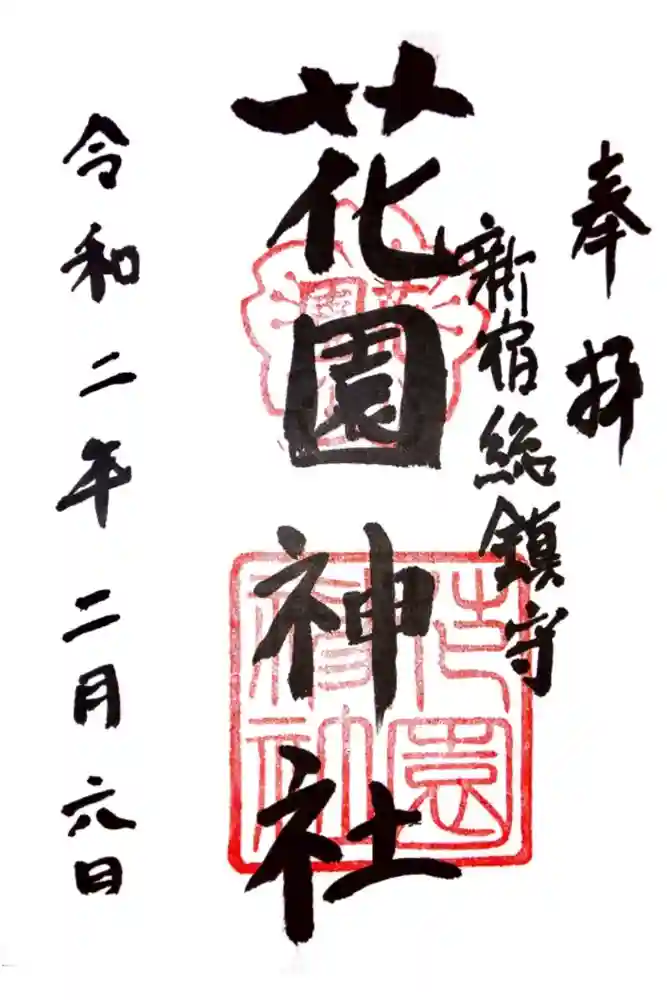 奉拝
新宿総鎮守
花園神社
花園
花園神社
令和二年二月六日